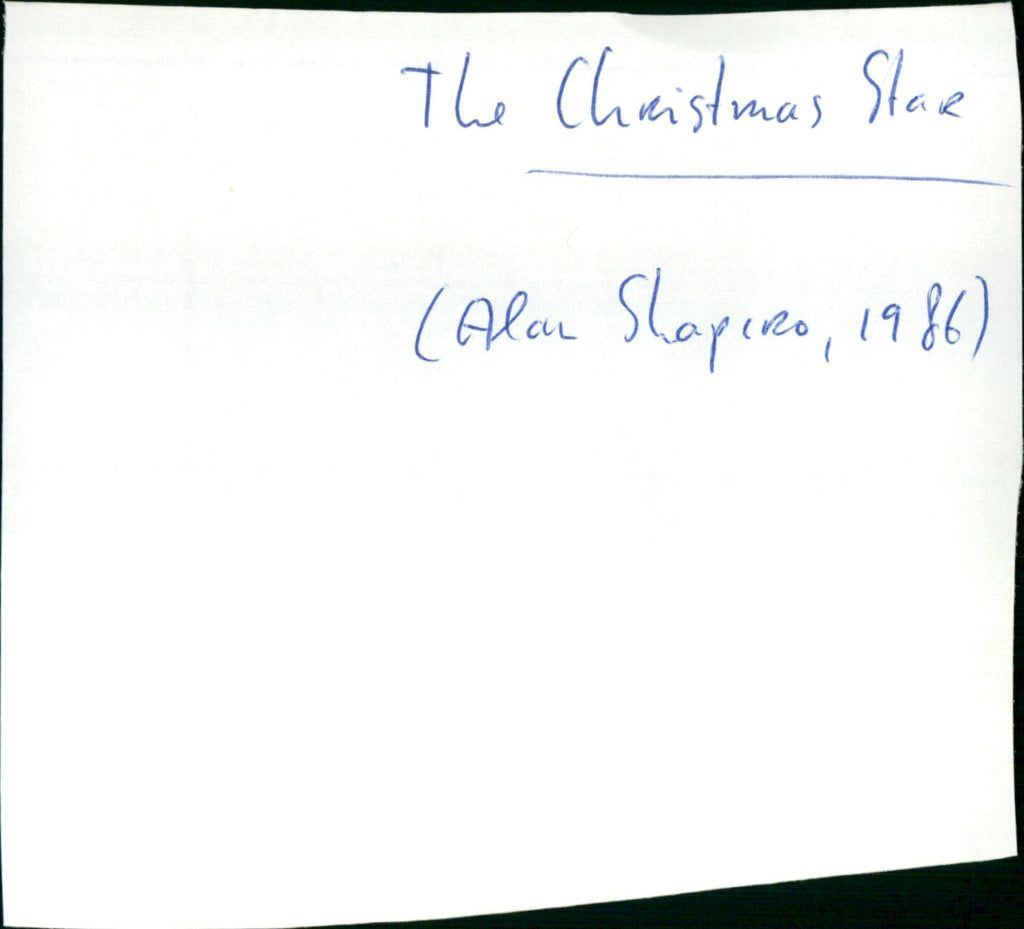 The Christmas Star
(Alan Shapiro, 1986)